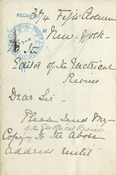 374 Fifth Avenue
New York
To the
Editor of the Electrical
Review
Dear Sir -
Please send my
Copy of the Electrical Review
to the above
address until